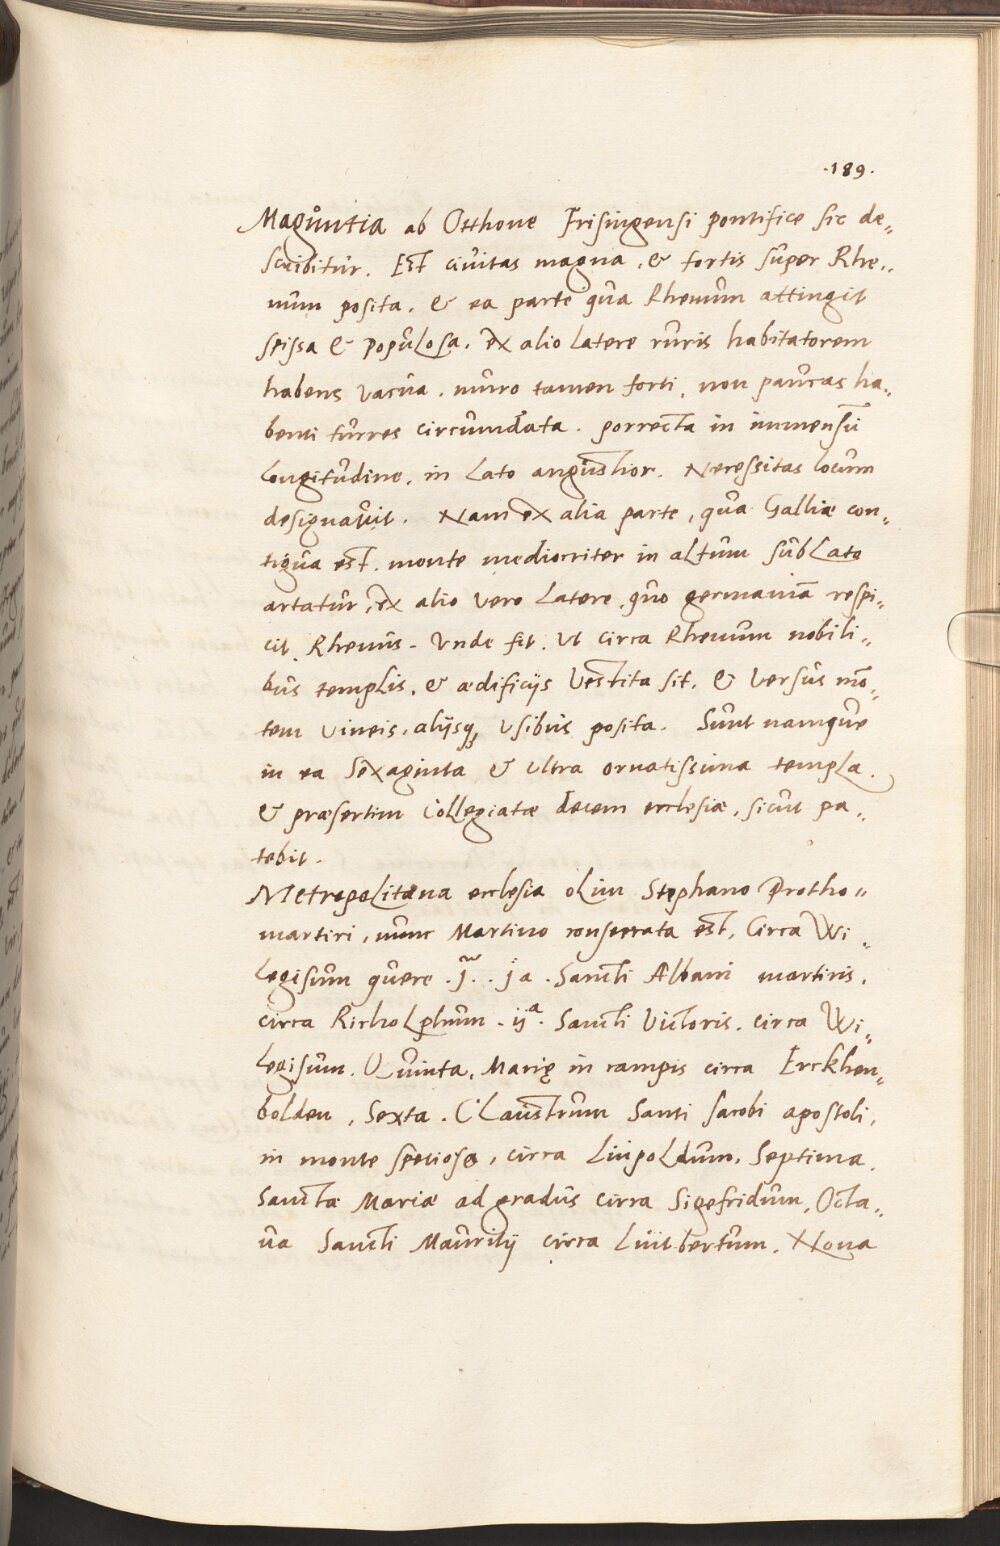 .189.
Maguntia ab Otthone Frisingensi pontifice sic de„
scribitur. Est ciuitas magna, & fortis super Rhe„
num posita, & ea parte qua Rhenum attingit
spissa & populosa. ex alio latere ruris habitatorem
habens vacua. muro tamen forti, non paucas ha„
benti turres circumdata. porrecta in inmensũ
longitudine, in lato angustior. Necessitas locum
designauit. Nam ex alia parte, qua Galliæ con„
tigua est. monte mediocriter in altum sublato
artatur, ex alio vero latere, quo germaniã respi„
cit, Rhenus. Vnde fit. ut circa Rhenum nobili„
bus templis, & ædificijs vestita sit, & versus mõ„
tem vineis, alijsq, vsibus posita. Sunt namque
in ea sexaginta & ultra ornatissima templa.
& præsertim collegiatæ decem ecclesiæ, sicut pa„
tebit.
Metropolitana ecclesia olim Stephano Protho„
martiri, nunc Martino consecrata est, Circa Wi„
legisum quere . j. . ja . Sancti Albani martiris,
circa Richolphum . ijª. Sancti Victoris. circa Wi„
legisum. Quinta, Marię in campis circa Erckhen„
bolden, Sexta. Claustrum Santi Jacobi apostoli,
in monte spetiosa, circa Luipoldum. Septima.
Sanctæ Mariæ ad gradus circa Sigefridum, Octa„
ua Sancti Mauritij circa Luitbertum. Nona